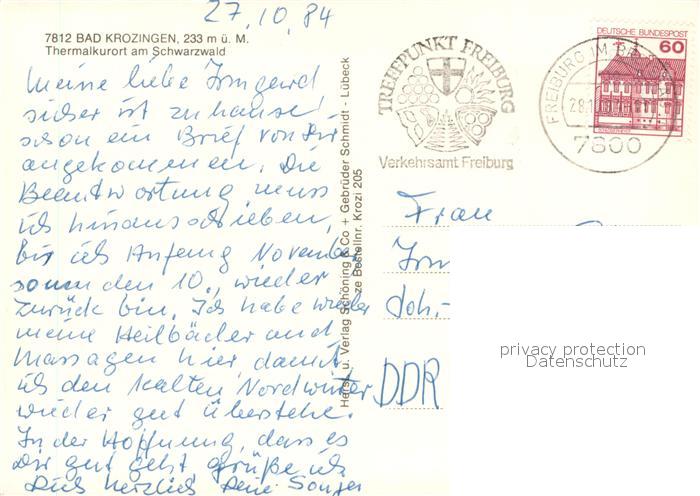 27.10.84
7812 BAD KROZINGEN, 233 m ü. M.
Thermalkurort am Schwarzwald
Meine liebe Irmgard
sicher ist zuhause
schon ein Brief von Dir
angekommen. Die
Beantwortung muss
ich hinausschieben,
bis ich Anfang November
so um den 10. wieder
zurück bin. Ich habe wieder
meine Heilbäder und
Massagen hier, damit
ich den kalten Nordwinter
wieder gut überstehe.
In der Hoffnung, dass es
Dir gut geht, grüße ich
Dich herzlich Deine
Herst. u. Verlag Schöning & Co + Gebrüder Schmidt - Lübeck
ze Bestellnr. Krozi 205
TREFFPUNKT FREIBURG
Verkehrsamt Freiburg
DEUTSCHE BUNDESPOST
60
FREIBURG IM
7800
Frau
Irm
DDR
privacy protection
Datenschutz